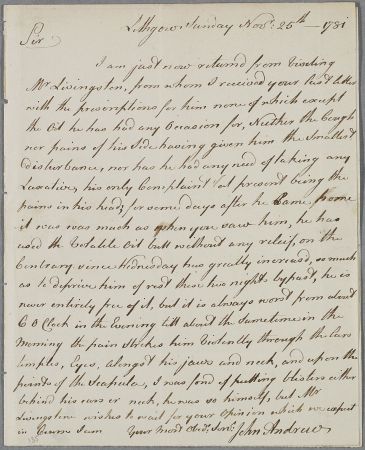 Lithgow Sunday Novr. 25th — 1781
Sir
I am just now returnd from visiting
Mr Livingston, from whom I received your last letter
with the prescriptions for him none of which except
the Oil he has had any Occasion for, Neither the Cough
nor pains of his Side having given him the Smallest
disturbance, nor has he had any need of taking any
Laxative, his only Complaint at present being the
pains in his head, for some days after he Came home
it was much as when you saw him, he has
used the Volatile Oil but without any relief, on the
Contrary since Wednesday has greatly increasd, so much
as to deprive him of rest these two nights bypast, he is
never entirely free of it, but it is always worst from about
6 O Clock in the Evening till about the same time in the
Morning the pain strikes him Violently through the Ears
temples, Eyes, alongst his jaws and neck, and upon the
points of the Scapula, I was fond of putting blisters either
behind his ears or neck, he was so himself, but Mr
Livingstone wishes to wait for your Opinion which we expect
in Course I am Your Most Obdt. Servt. John Andrew
135